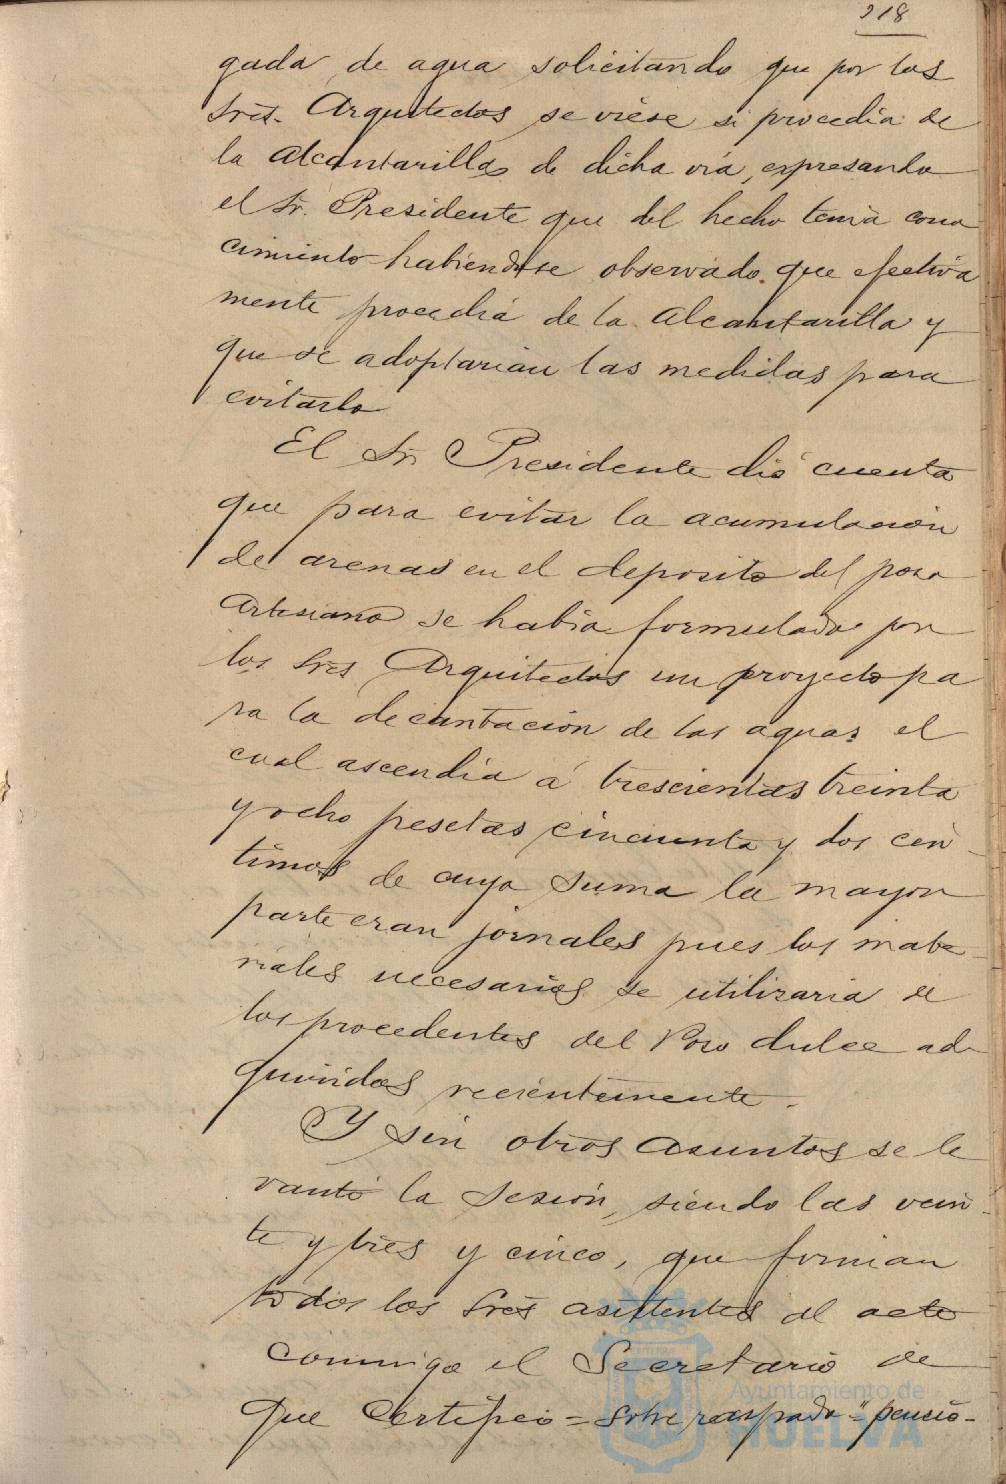 218
gada de agua solicitando que por los
Sres. Arquitectos se viese si procedia de
la Alcantarilla de dicha via, expresando
el Sr. Presidente que del hecho tenia cono
cimiento habiendose observado que efectiva
mente procedia de la Alcantarilla y
que se adoptarian las medidas para
evitarlo
El Sr. Presidente dió cuenta
que para evitar la acumulación
de arenas en el deposito del pozo
Artesiano se habia formulado por
los Sres Arquitectos un proyecto pa
ra la decantación de las aguas el
cual ascendia á trescientas treinta
y ocho pesetas cincuenta y dos cén-
timos de cuya suma la mayor
parte eran jornales pues los mate-
riales necesarios se utilizaria de
los procedentes del Pozo dulce ad-
quiridos recientemente.
Y sin otros asuntos se le
vantó la sesión, siendo las vein-
te y tres y cinco, que firman
todos los Sres asistentes al acto
conmigo el Secretario de
que Certifico = Sobre raspado = "pensio-
Ayuntamiento de
HUELVA